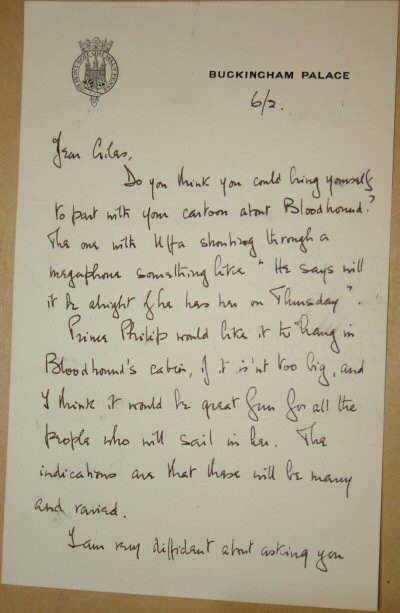 BUCKINGHAM PALACE
6/2.
Dear Giles,
Do you think you could bring yourself
to part with your cartoon about Bloodhound?
The one with Uffa shouting through a
megaphone something like "He says will
it be alright if he has her on Thursday".
Prince Philip would like it to hang in
Bloodhound's cabin, if it is'nt too big, and
I think it would be great fun for all the
people who will sail in her. The
indications are that these will be many
and varied.
I am very diffident about asking you